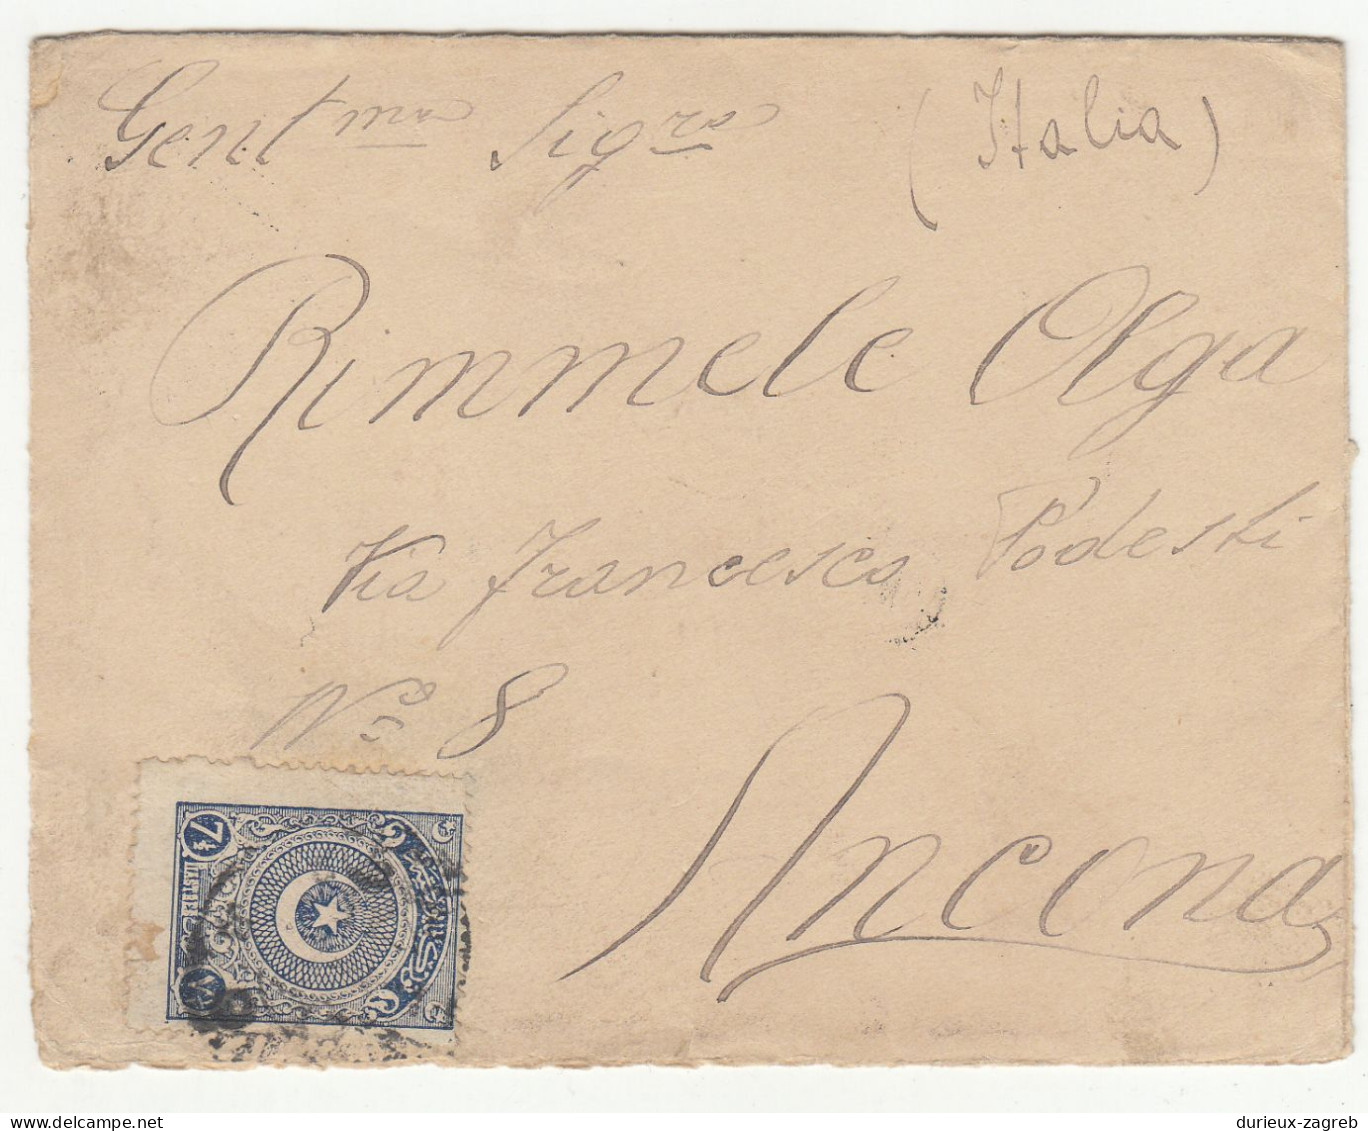 Gent^ma Sig^ra (Italia)
Rimmele Olga
Via Francesco Podesti
N° 8
Ancona
durieux-zagreb